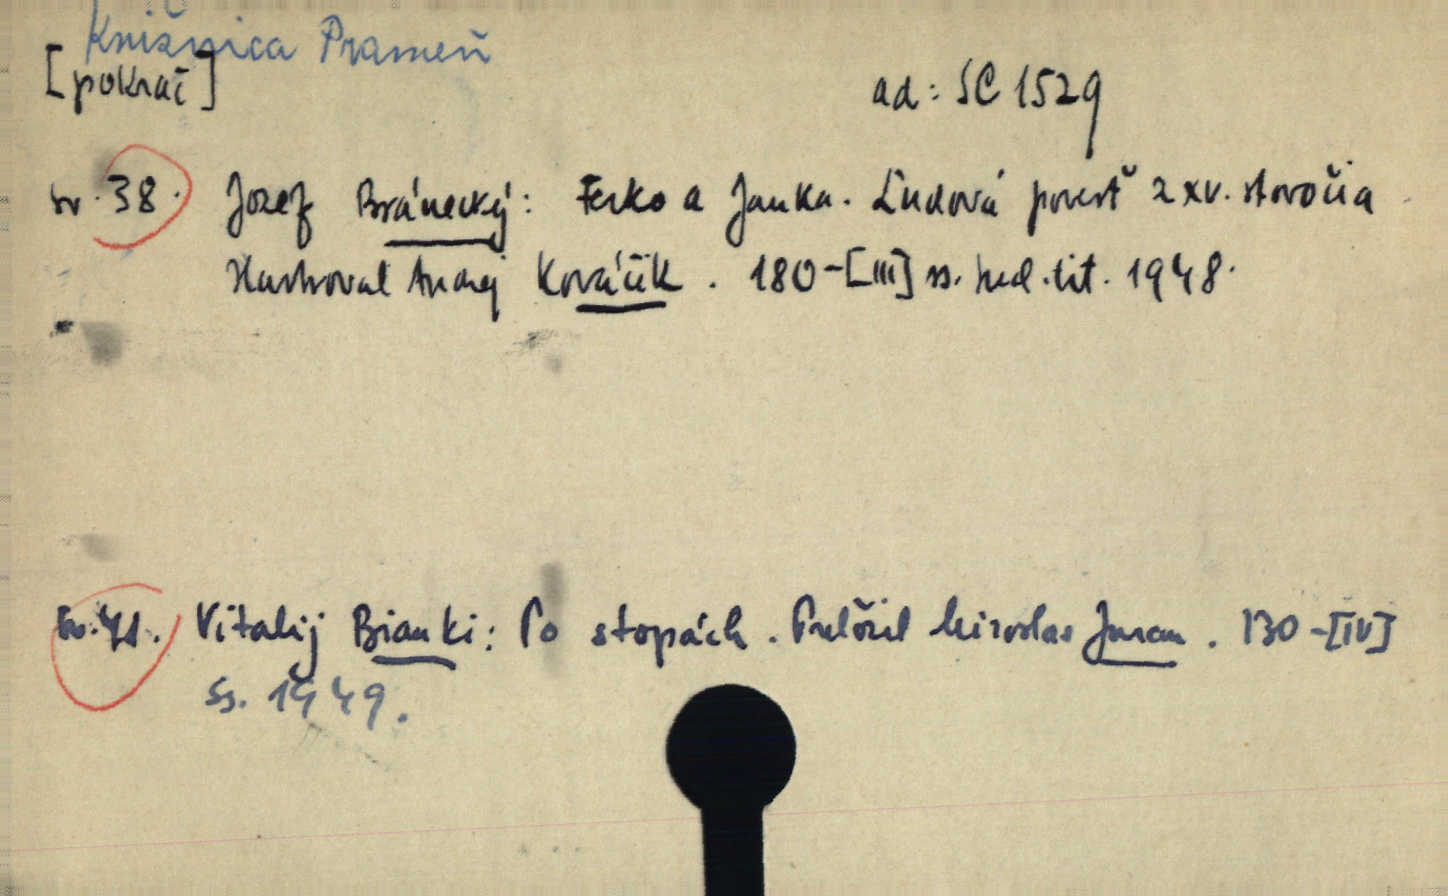 Knižnica Prameň
[pokrač]
ad: SC 1529
sv. 38. Jozef Bránecký: Ferko a Janka. Ľudová povesť z XV. storočia
Ilustroval Andrej Kováčik. 180-[III] ss. pred. lit. 1948.
Sv. 41. Vitalij Bianki: Po stopách. Preložil Miroslav Juran. 130-[IV]
ss. 1949.